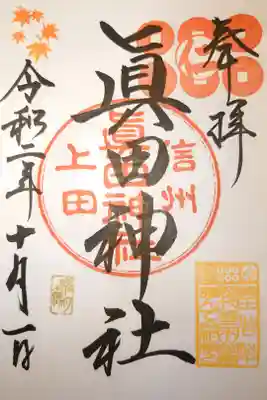 奉拝
眞田神社
信州
上田
眞田神社
令和二年十月一日